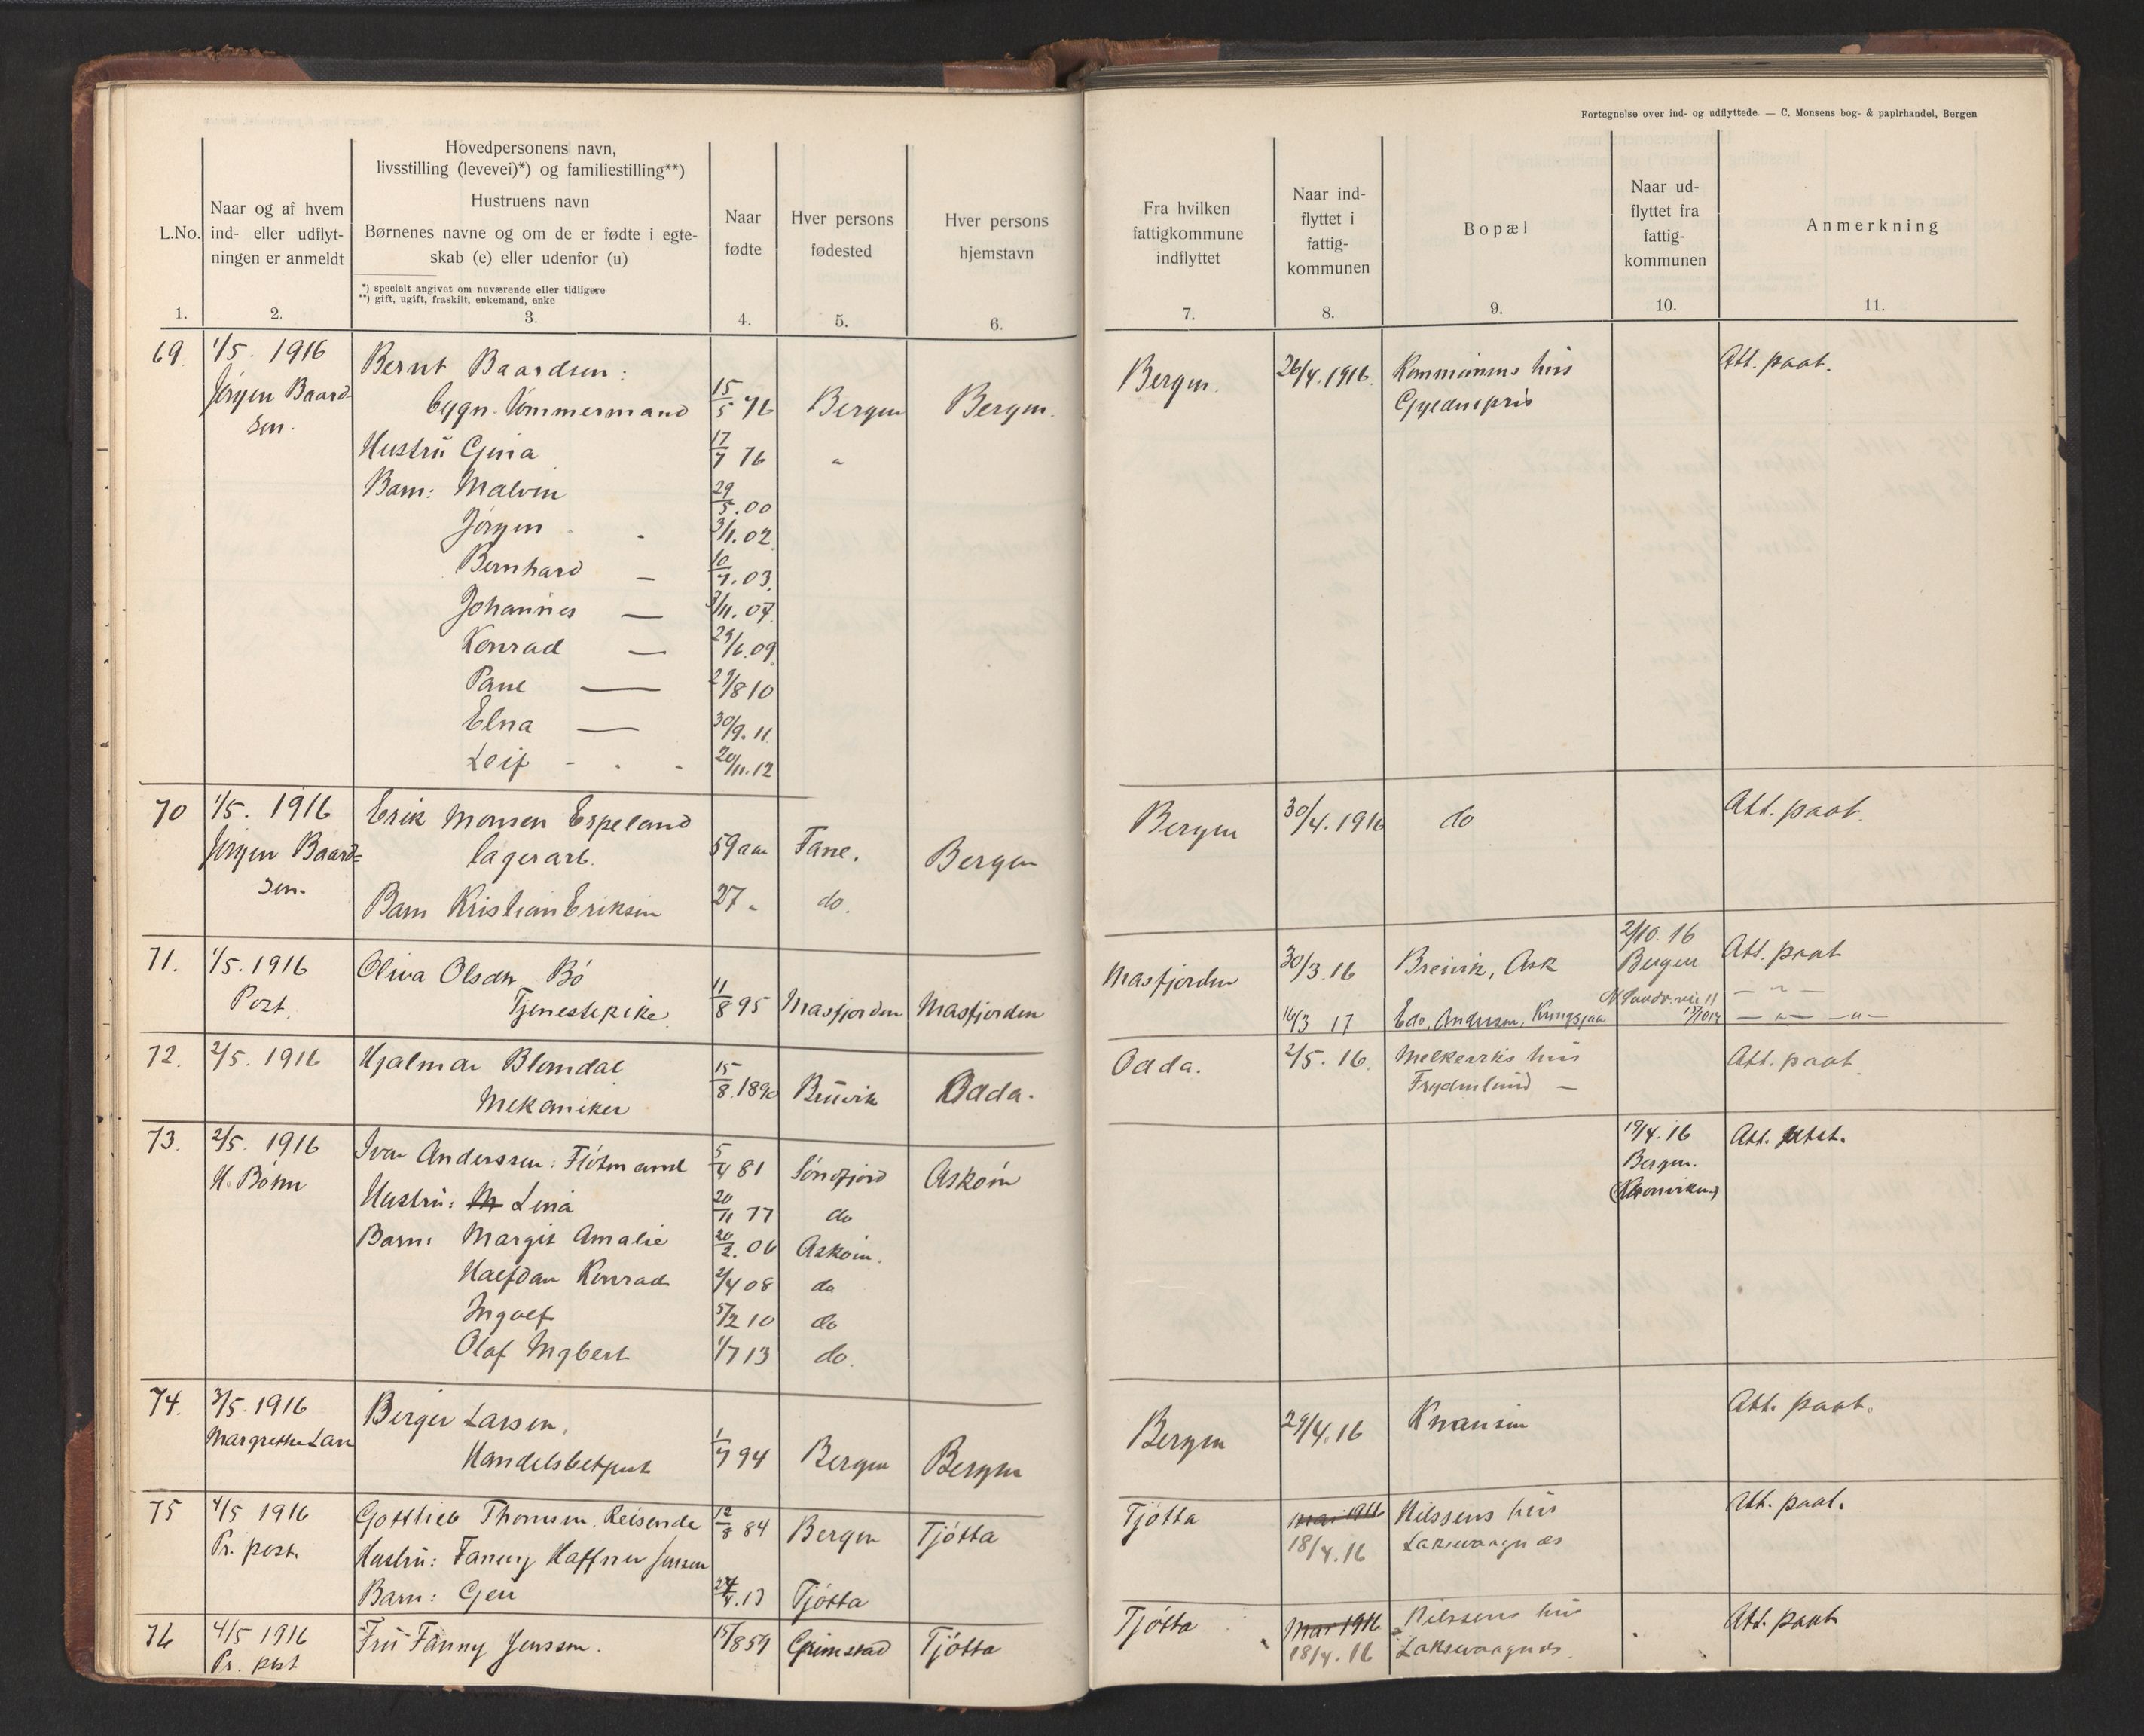 Fortegnelse over ind- og udflyttede. — C. Monsens bog- & papirhandel, Bergen
L.No.
1.
Naar og af hvem
ind- eller udflyt-
ningen er anmeldt
2.
Hovedpersonens navn,
livsstilling (levevei)*) og familiestilling**)
Hustruens navn
Børnenes navne og om de er fødte i egte-
skab (e) eller udenfor (u)
*) specielt angivet om nuværende eller tidligere
**) gift, ugift, fraskilt, enkemand, enke
3.
Naar
fødte
4.
Hver persons
fødested
5.
Hver persons
hjemstavn
6.
Fra hvilken
fattigkommune
indflyttet
7.
Naar ind-
flyttet i
fattig-
kommunen
8.
Bopæl
9.
Naar ud-
flyttet fra
fattig-
kommunen
10.
Anmerkning
11.
69 1/5. 1916 Bernt Baardsen: Bergen. 26/4.1916. Kommunens hus Att. paat.
Jørgen Baard- bygn. tømmermand 15/5 76 Bergen Bergen. Gyldenpris
sen.
Hustru Gina 17/7 76 "
Barn: Malvin 29/5.00
Jørgen 3/1.02
Bernhard — 10/7.03
Johannes — 3/11.07
Konrad — 29/6.09
— 29/8 10
Elna — 30/9.11
Leif - . - 20/11.12
70 1/5. 1916 Erik Monsen Espeland Bergen 30/4.1916 do Att. paat.
Jørgen Baard= lagerarb. 59 aar Fane. Bergen
sen.
Barn Kristian Eriksen 27 " do.
71. 1/5.1916 Oliva Olsdtr Bö Masfjorden 30/3.16 Breivik, Ask 2/10.16 Bergen Att. paat
Post. Tjenestepike 11/8 95 Masfjorden Masfjorden — " —
16/3 17 Edv. Andersen, — " — — " —
72. 2/5. 1916 Hjalmar Blomdal Odda. 2/5.16. Melkeviks hus Att. paat.
Mekaniker 15/8.1890 Bruvik Odda. Frydenlund —
73. 2/5. 1916 Ivar Anderssen: Flötmand 5/4 81 Söndfjord Asköin 19/4.16 Att. utst.
H. Böhn Bergen.
Hustru: Lina 20/11 77 do
Barn: Margit Amalie 20/2.06 Asköin.
Halfdan Konrad 2/4 08 do
Ingolf 5/2 10 do
Olaf Ingbert 1/7 13 do.
74. 3/5.1916 Berger Larsen, Bergen 29/4.16 Knausen Att. paat.
Margrethe Lars Handelsbetjent 1/7 94 Bergen Bergen
75 4/5 1916 Gottlieb Thomsen. Reisende 12/8 84 Bergen Tjötta Tjötta mai 1916 Nilssens hus Att. paat.
Pr. post. Hustru: Fanny Haffner Jensen 18/4.16 Laksevaagnes
Barn: Geir 27/4.13 Tjötta
76 4/5 1916 Fru Fanny Jenssen. 15/8 59 Grimstad Tjötta Tjötta Mai 1916 Nilssens hus Att. paat
Pr. post 18/4.16 Laksevaagnes.